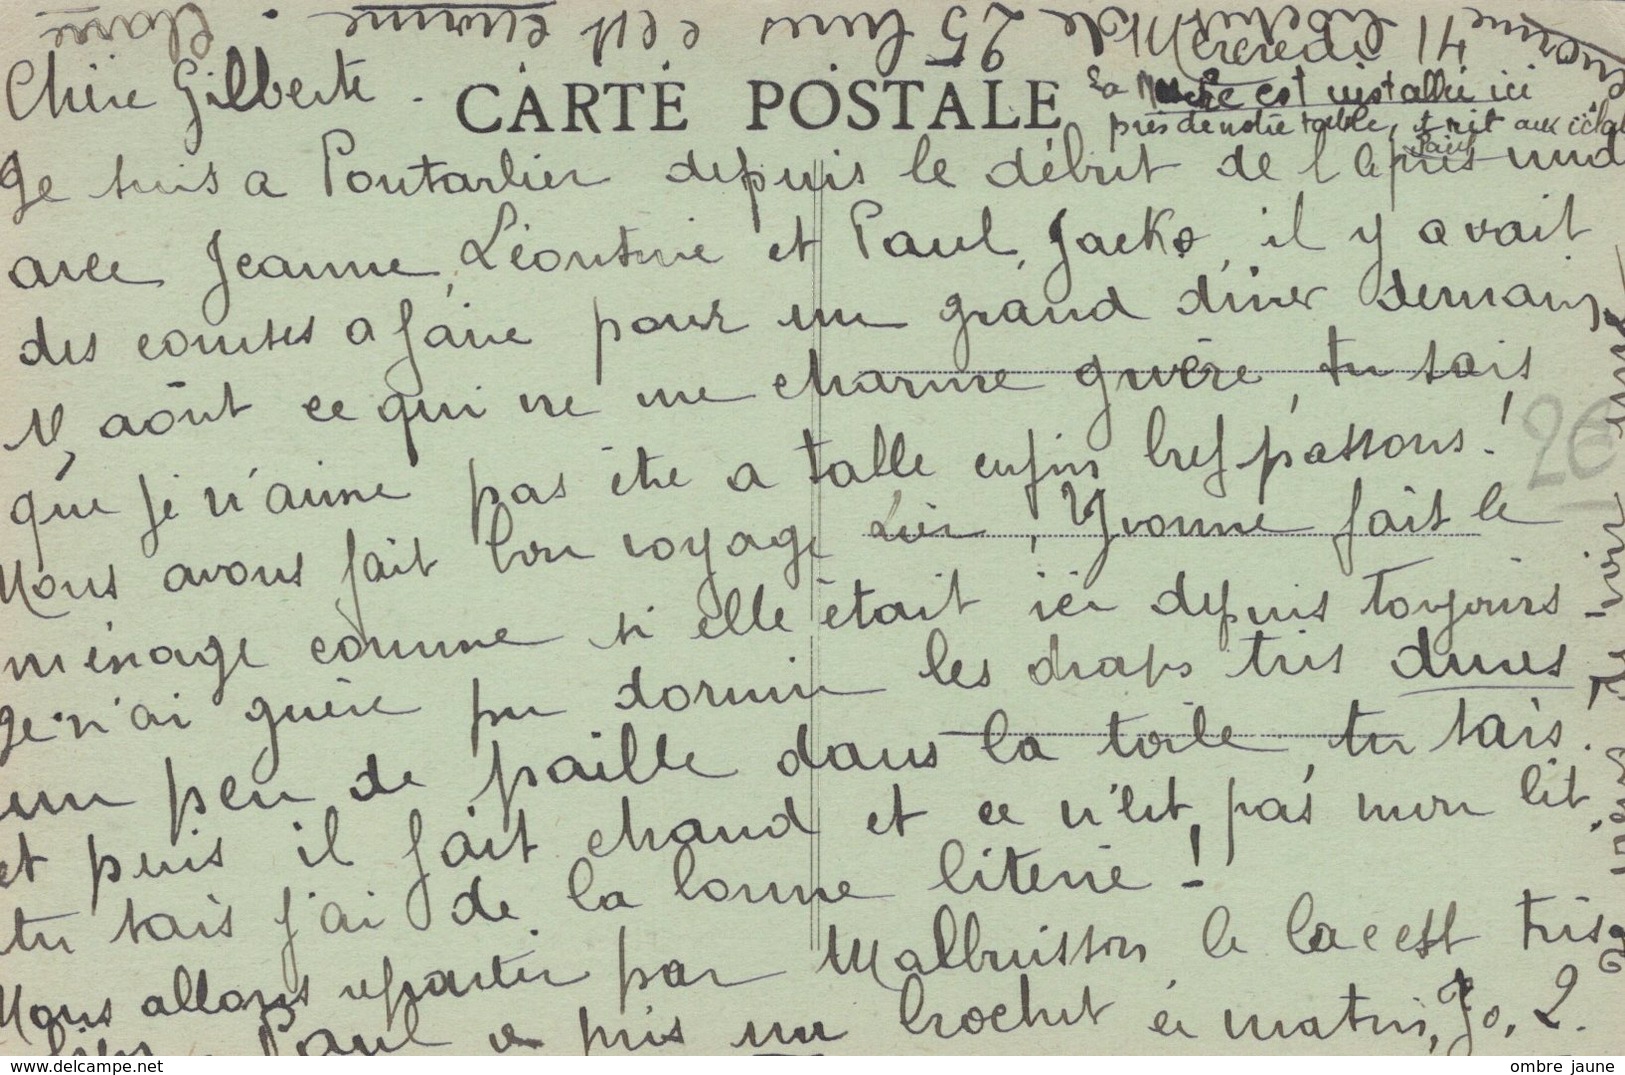 Chère Gilberte.
CARTE POSTALE
La est installée ici
près de notre table, et rit aux éclats
Je suis a Pontarlier depuis le début de l après midi
avec Jeanne, Léontine et Paul, Jacko, il y avait
des courses a faire pour un grand diner demain,
N, août ce qui ne me charme guère, tu sais
que je n'aime pas être a table enfin bref passons!
Nous avons fait bon voyage hier, Yvonne fait le
ménage comme si elle était ici depuis toujours
Je n'ai guère pu dormir les draps très dures,
un peu de paille dans la toile, tu sais.
et puis il fait chaud et ce n'est pas mon lit,
tu sais j'ai de la bonne literie!
Nous allons repartir par Malbuisson le lac est très
bien. Paul a pris un brochet ce matin, Jo, 2.
25 c'est énorme
Mercredi
Claire
2€
www.delcampe.net
ombre jaune